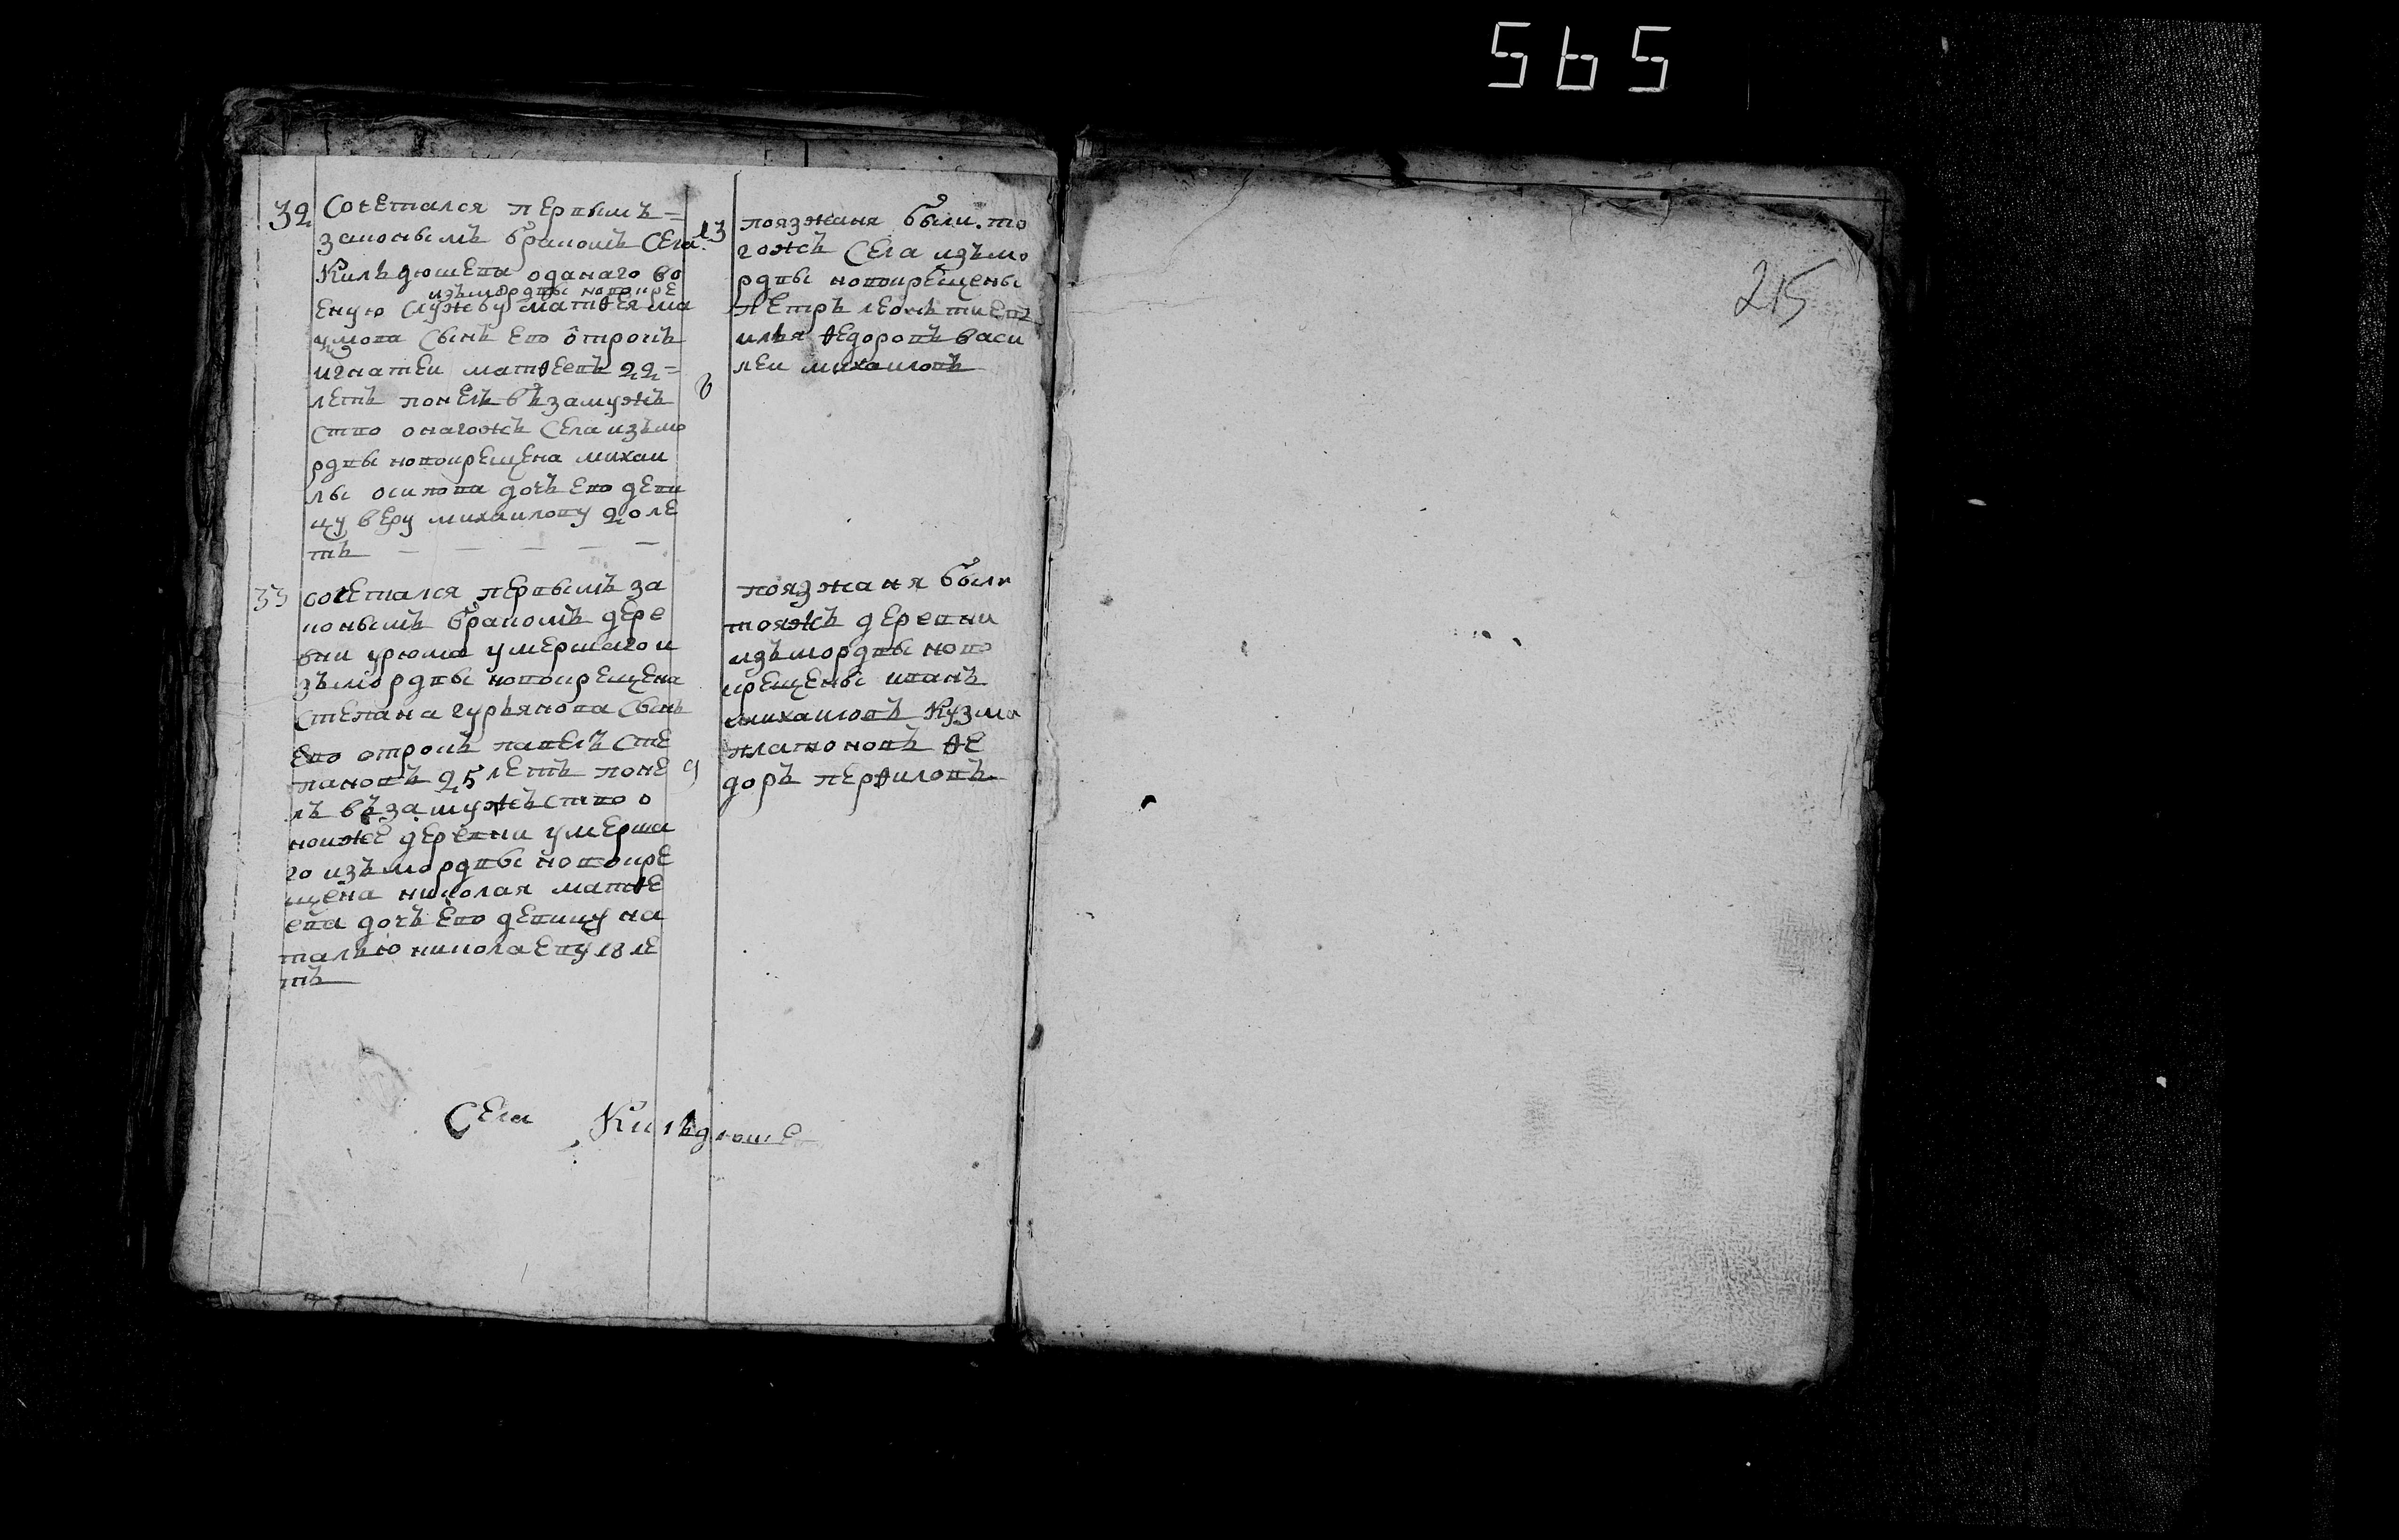 565
215
32
Сочетался первымъ =
законымъ бракомъ села
Кильдюшева оданаго во
изъмордвы новокре
еную службу матѳея ма
умова сынъ ево отрокъ
игнатеи матѳеевъ 22 =
летъ понелъ въ замужъ
ство онагожъ села изъмо
рдвы новокрещена михаи
лы осипова дочь ево деви
цу веру михаилову 20 ле
тъ — — — — —
13
8
поязжаня были. то
гожъ села изъмо
рдвы новокрещены
петръ леонтиевъ
илья ѳедоровъ васи
леи михаиловъ
33
сочетался первымъ за
конымъ бракомъ дере
вни урюма умершаго и
зъмордвы новокрещена
степана гурьянова сынъ
ево отрокъ павелъ сте
пановъ 25 летъ поне
лъ въ замужъство о
ноижъ деревни умерша
го изъмордвы новокре
щена николая матѳе
ева дочь ево девицу на
талью николаеву 18 ле
тъ
9
поязжаня были
тояжъ деревни
изъмордвы ново
крещены иванъ
михаиловъ Кузма
платоновъ ѳе
доръ перѳиловъ
Села Кильдюше